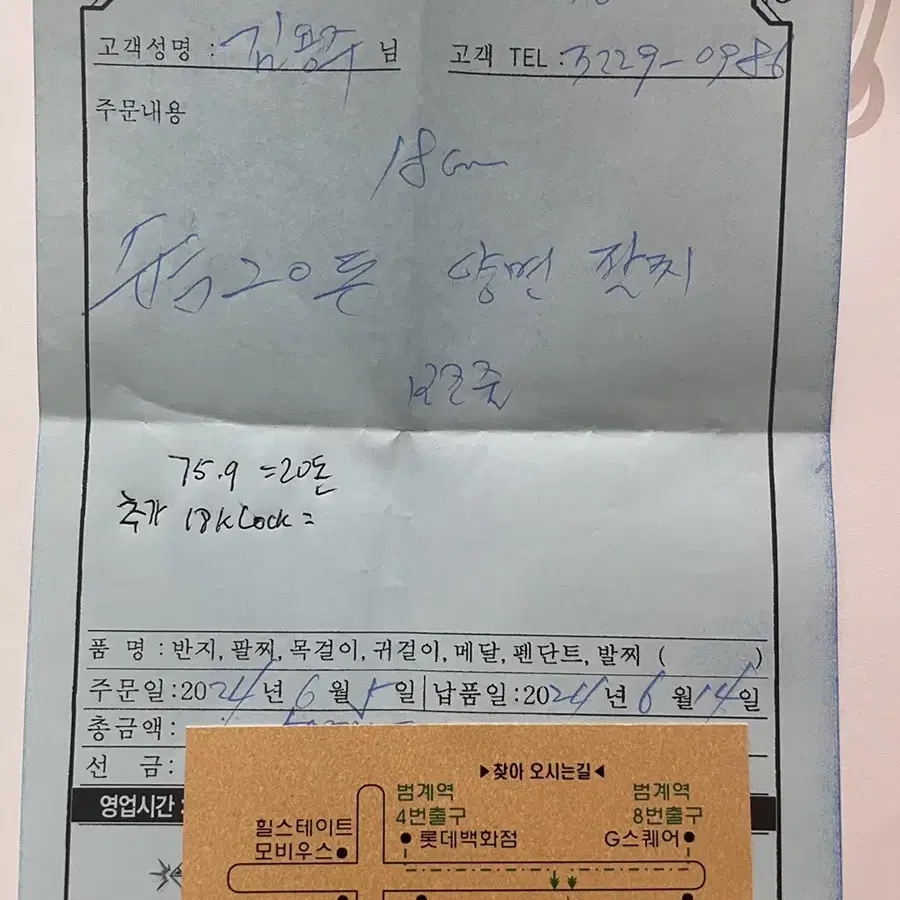 고객성명 : 김용주 님 고객 TEL : 3229-0986
주문내용
18cm
순금 20돈 양면 팔찌
75.9 =20돈
추가 18k Lock =
품 명 : 반지, 팔찌, 목걸이, 귀걸이, 메달, 펜던트, 발찌 ( )
주문일:2024년 6월 5일 납품일:2024년 6월 14일
총금액:
선 금:
영업시간 :
▶찾아 오시는길◀
범계역 4번출구
범계역 8번출구
힐스테이트 모비우스
롯데백화점
G스퀘어